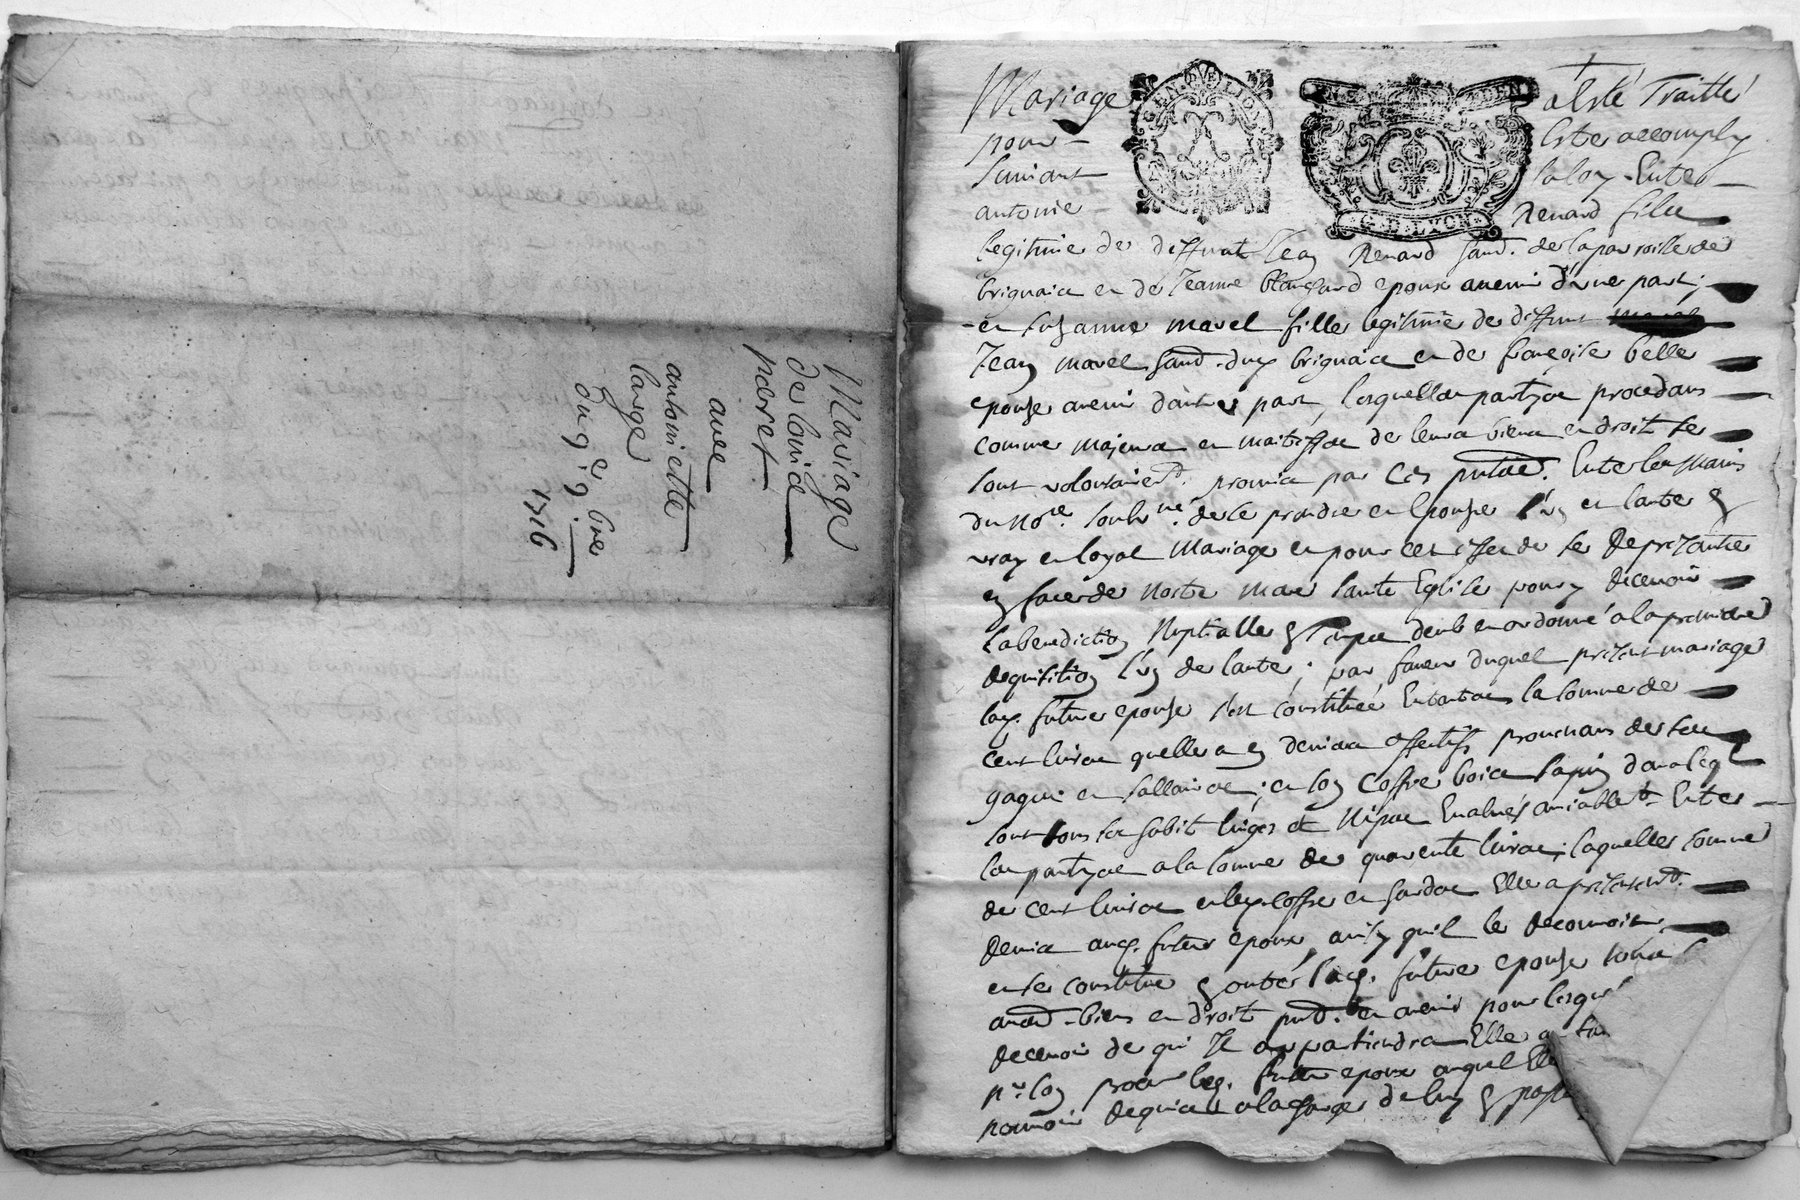 Mariage
de louis
perret
avec
antoinette
large
du 9 e bre
1716
Mariage a Esté Traitté
pour Estre accomply
Suivant la loy Entre
antoine Renard fils
legitime de deffunt Jean Renard hand. de la paroisse de
brignais et de Jeanne blanchard epoux avenir d'une part;
et suzanne marel fille legitime de deffunt
Jean marel hand. dud brignais et de françoise belle
epouse avenir d'autre part, lesquelles partyes procedans
comme majeurs et maitres de leurs biens et droit se
sont volontairemt. promis par Ces pntes. Entre les Mains
du Nore. soubs.né de se prendre en Epouse l'un et lautre En
vray et loyal Mariage et pour cet effet de se Representer
En face de Nostre mere sainte Eglise pour y Recevoir
la benediction Nuptialle En temps deub et ordonné a la premiere
Requisition l'un de lautre; par faveur duquel present mariage
lad. future epouse s'est constituée la somme de
cent livres quelle a En deniers effectifs provenans de ses
gages et sallaires; et son Coffre bois sapin dans leql
sont tous ses habit linges et Nipes Evalués amiablemt Entre
les partyes a la somme de quarente livres; laquelle somme
de cent livres et led. coffre et hardes Elle a presentemt.
Remis aud. futur epoux, ainsy quil le Reconnoist
et se constitue En outre lad. future epouse tous
aud. biens et droit pnt. et avenir pour lesquels
Recevoir de qui Il appartiendra Elle a fait
pr. son procur led. futur epoux auquel Elle
pouvoir Requier a la charge de luy En
G.D. LYON